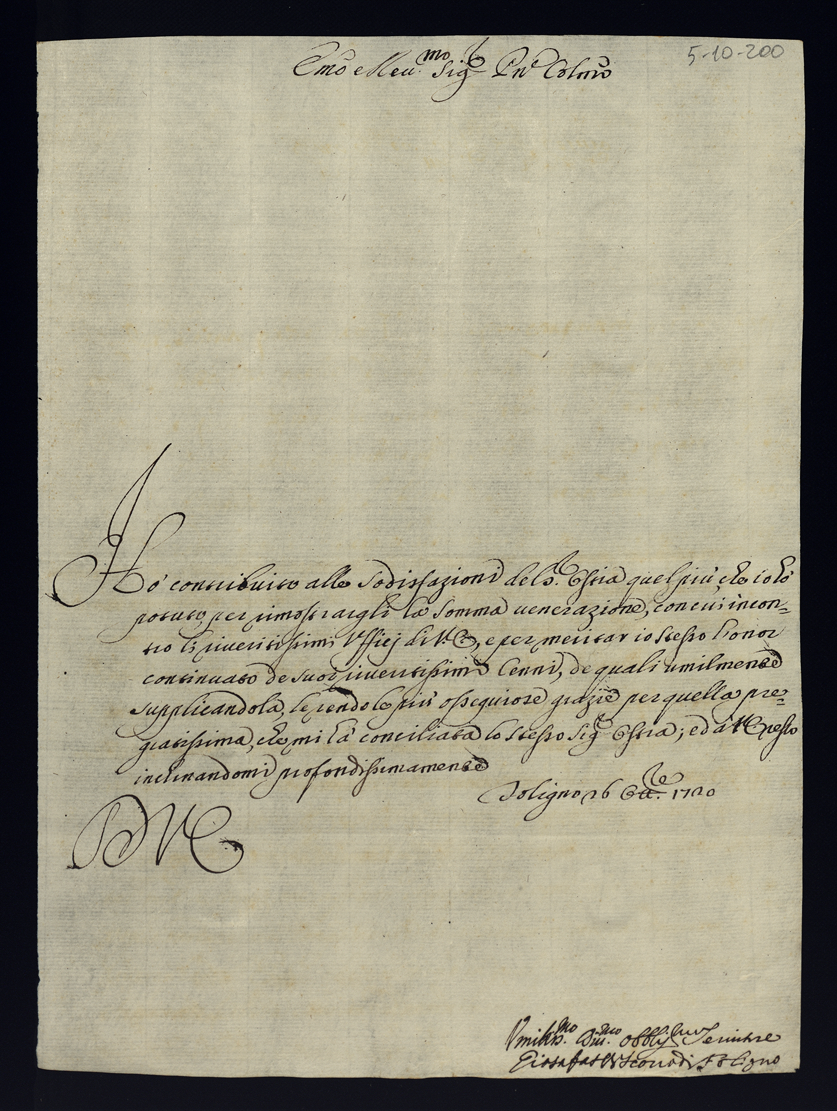 5-10-200
Emo e Reu.mo Sig.r Pne Colmo
Hò contribuito alle Sodisfazioni del S.r Ossia quel più che io hò
potuto, per rimostrargli la somma venerazione, con cui incon-
tro li riveritissimi Uffici di V.E., e per meritar io stesso l'honor
continuato de suoi riveritissimi Cenni, de quali umilmente
supplicandola, le rendo le più ossequiose grazie per quella pre-
giatissima, che mi hà conciliata lo stesso Sig.r Ossia; ed à V.E. resto
inclinandomi profondissimamente
Foligno 26 Ott.re 1720
D V E
Vmiliss.mo Diu.mo obblig.mo Seruitre
Giosafat Vescouo di Foligno